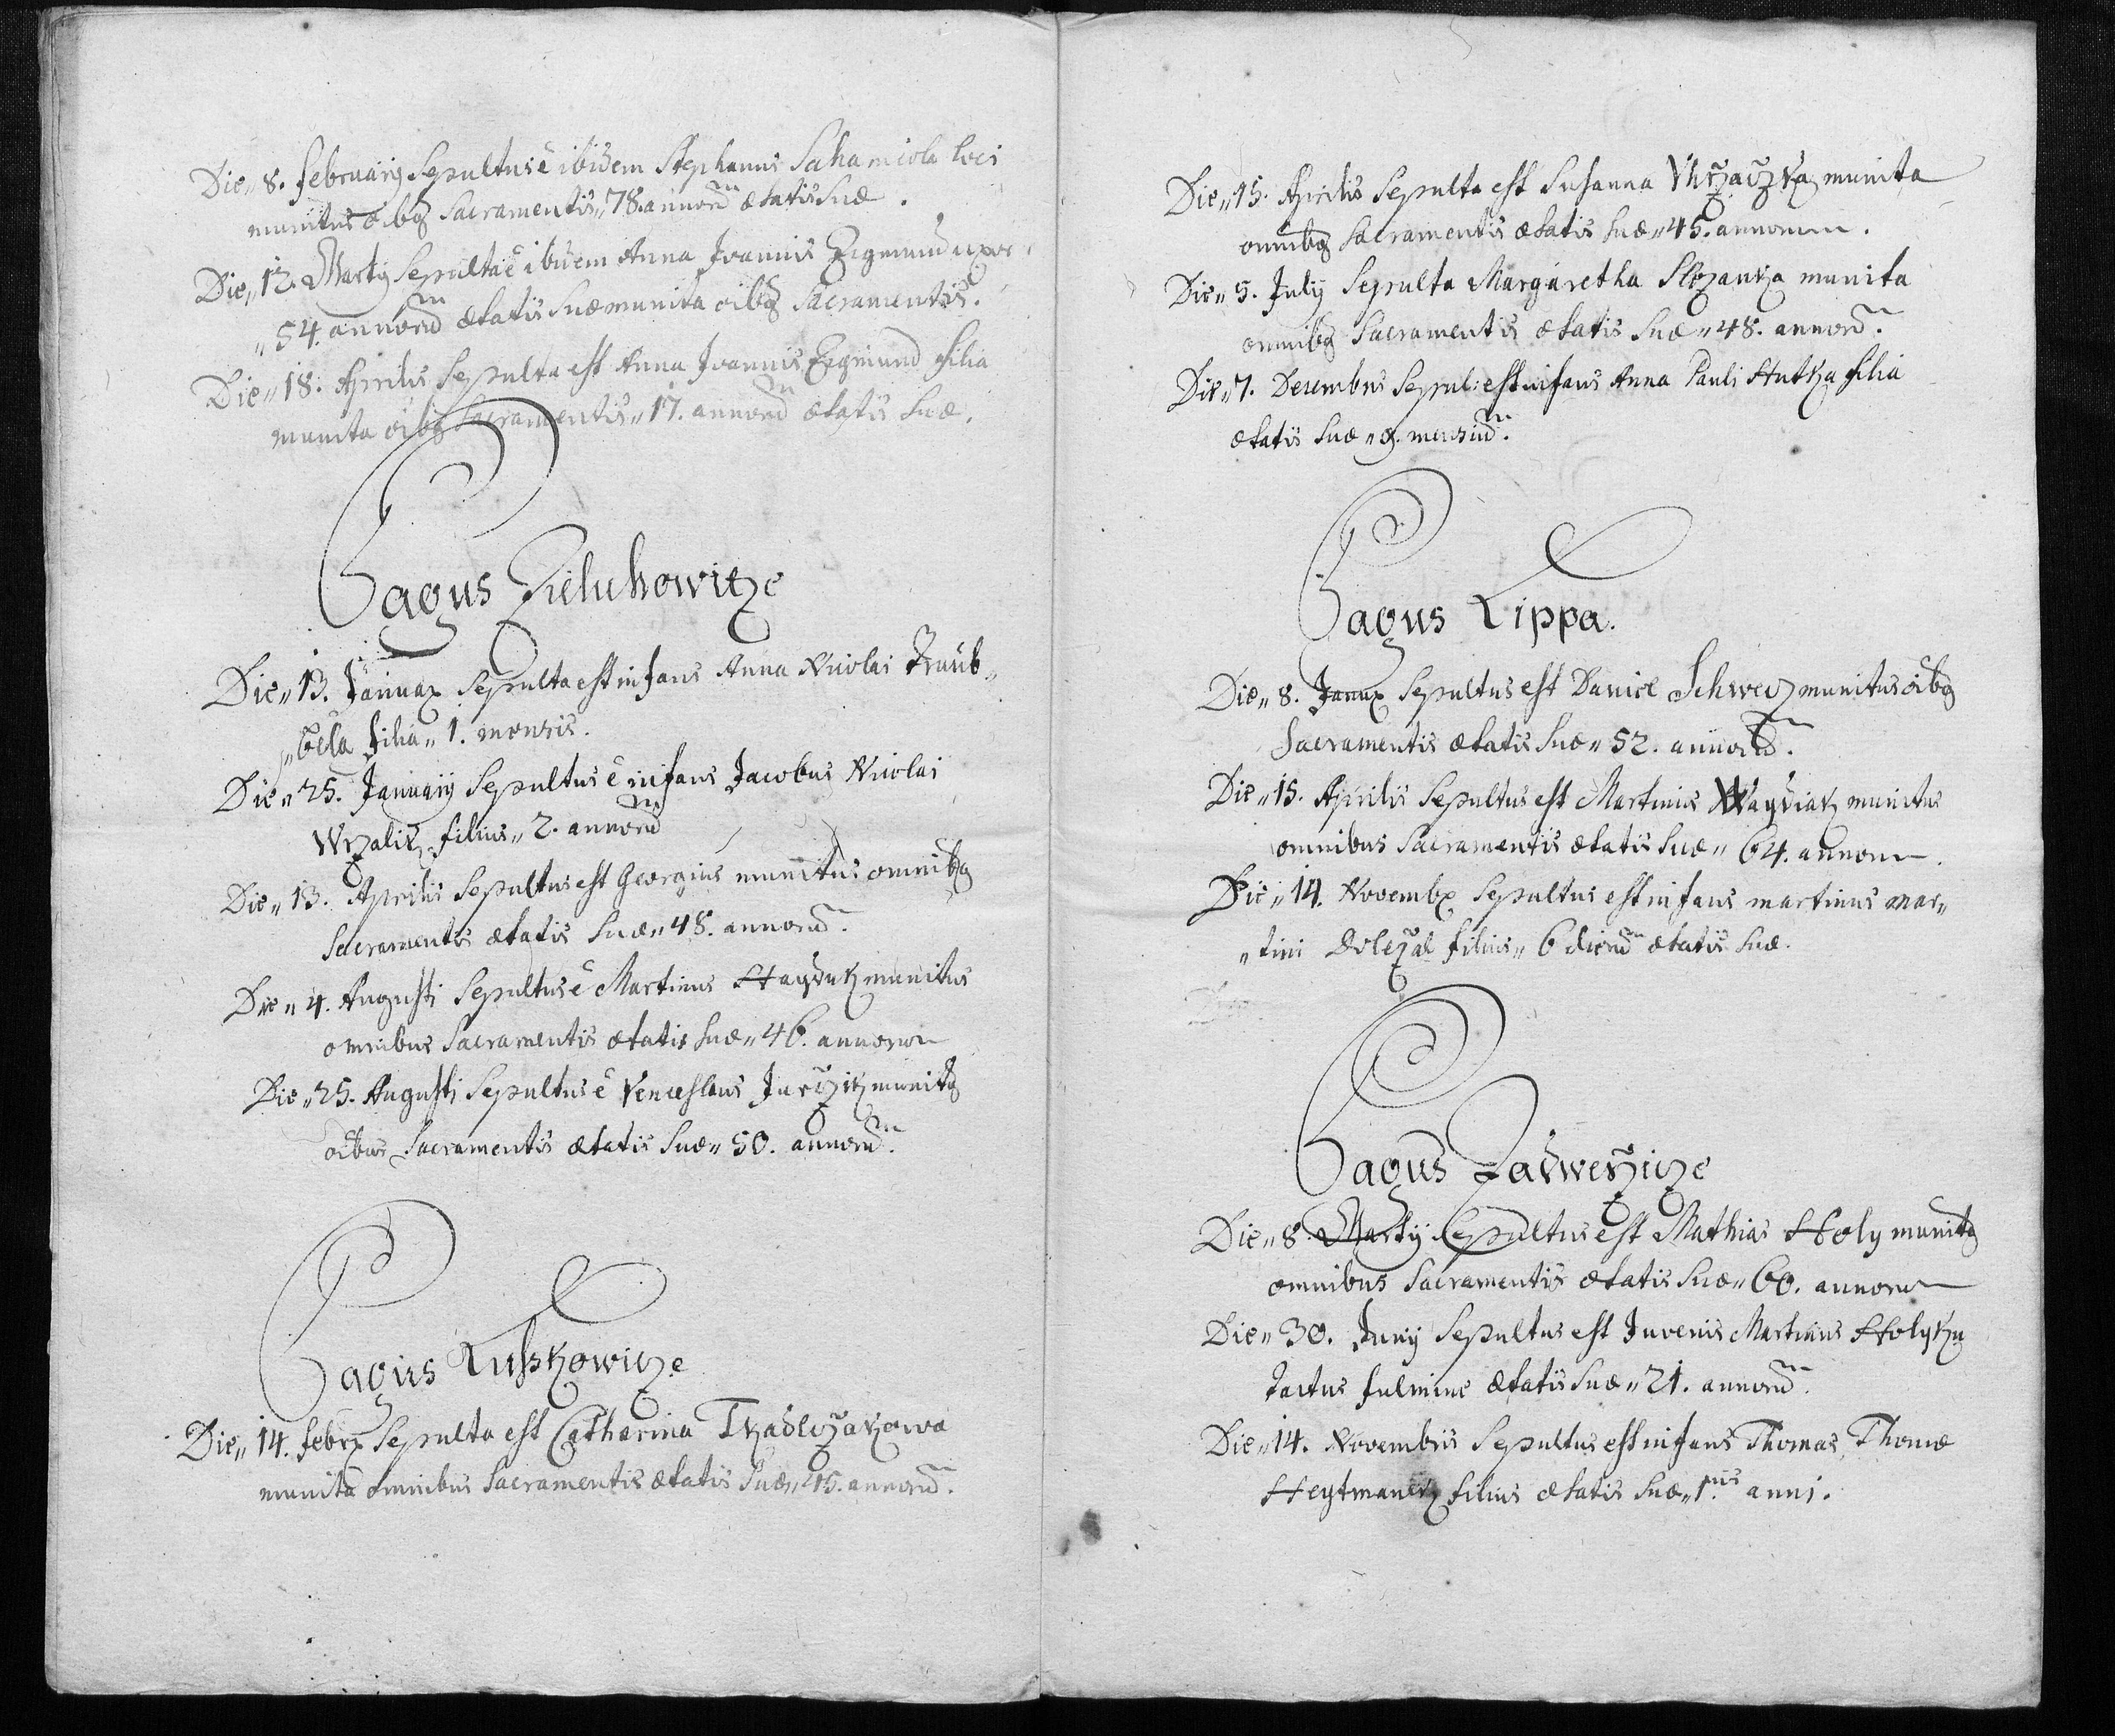 Die„ 8. februarij Sepultus ē ibidem Stephanus Sahamiola loci
munitus oībq Sacramentis„ 78. annorū ætatis Suæ.
Die„ 12. Martij Sepulta ē ibidem Anna Joannis Zigmund uxor
„54. annorū ætatis Suæ munita oībq Sacramentis.
Die„ 18. Aprilis Sepulta est Anna Joannis Zigmund filia
munita oībq Sacramentis„ 17. annorū ætatis Suæ.
Pagus Zieluhowicze
Die„ 13. Januar Sepulta est infans Anna Nicolai Traub„
„bela filia„ 1. mensis.
Die„ 25. Januarij Sepultus ē infans Jacobus Nicolai
Wrzalik filius„ 2. annorū
Die„ 13. Aprilis Sepultus est Georgius munitus omnibq
Sacramentis ætatis Suæ„ 48. annorū.
Die„ 4. Augusti Sepultus ē Martinus Hayduk munitus
omnibus Sacramentis ætatis Suæ„ 46. annorum
Die„ 25. Augusti Sepultus ē Venceslaus Jurczik munitq
oībus Sacramentis ætatis Suæ„ 50. annorū.
Pagus Luskowicze
Die„ 14. febr Sepulta est Catharina Tkadlczakowa
munita omnibus Sacramentis ætatis Suæ„ 45. annorū.
Die„ 15. Aprilis Sepulta est Susanna munita
omnibq Sacramentis ætatis Suæ„ 45. annorum.
Die„ 5. July Sepulta Margaretha Slezanka munita
omnibq Sacramentis ætatis Suæ„ 48. annorū.
Die„ 7. Decembris Sepul: est infans Anna Pauli Hutka filia
ætatis Suæ„ mensiū.
Pagus Lippa.
Die„ 8. Janur Sepultus est Daniel Schwecz munitus oībq
Sacramentis ætatis Suæ„ 52. annorū.
Die„ 15. Aprilis Sepultus est Martinus Waydiak munitus
omnibus Sacramentis ætatis Suæ„ 64. annorum.
Die„ 14. Novembr Sepultus est infans martinus mar„
„tini Dolezal filius„ 6 dierū ætatis Suæ.
Pagus Zadwerzicze
Die„ 8. Martij Sepultus est Mathias Holy munitq
omnibus Sacramentis ætatis Suæ„ 60. annorum
Die„ 30. Juny Sepultus est Juvenis Martinus Holyku
tactus fulmine ætatis Suæ„ 21. annorū.
Die„ 14. Novembris Sepultus est infans Thomas Thomæ
Heytmanek filius ætatis Suæ„ 1.nis anni.